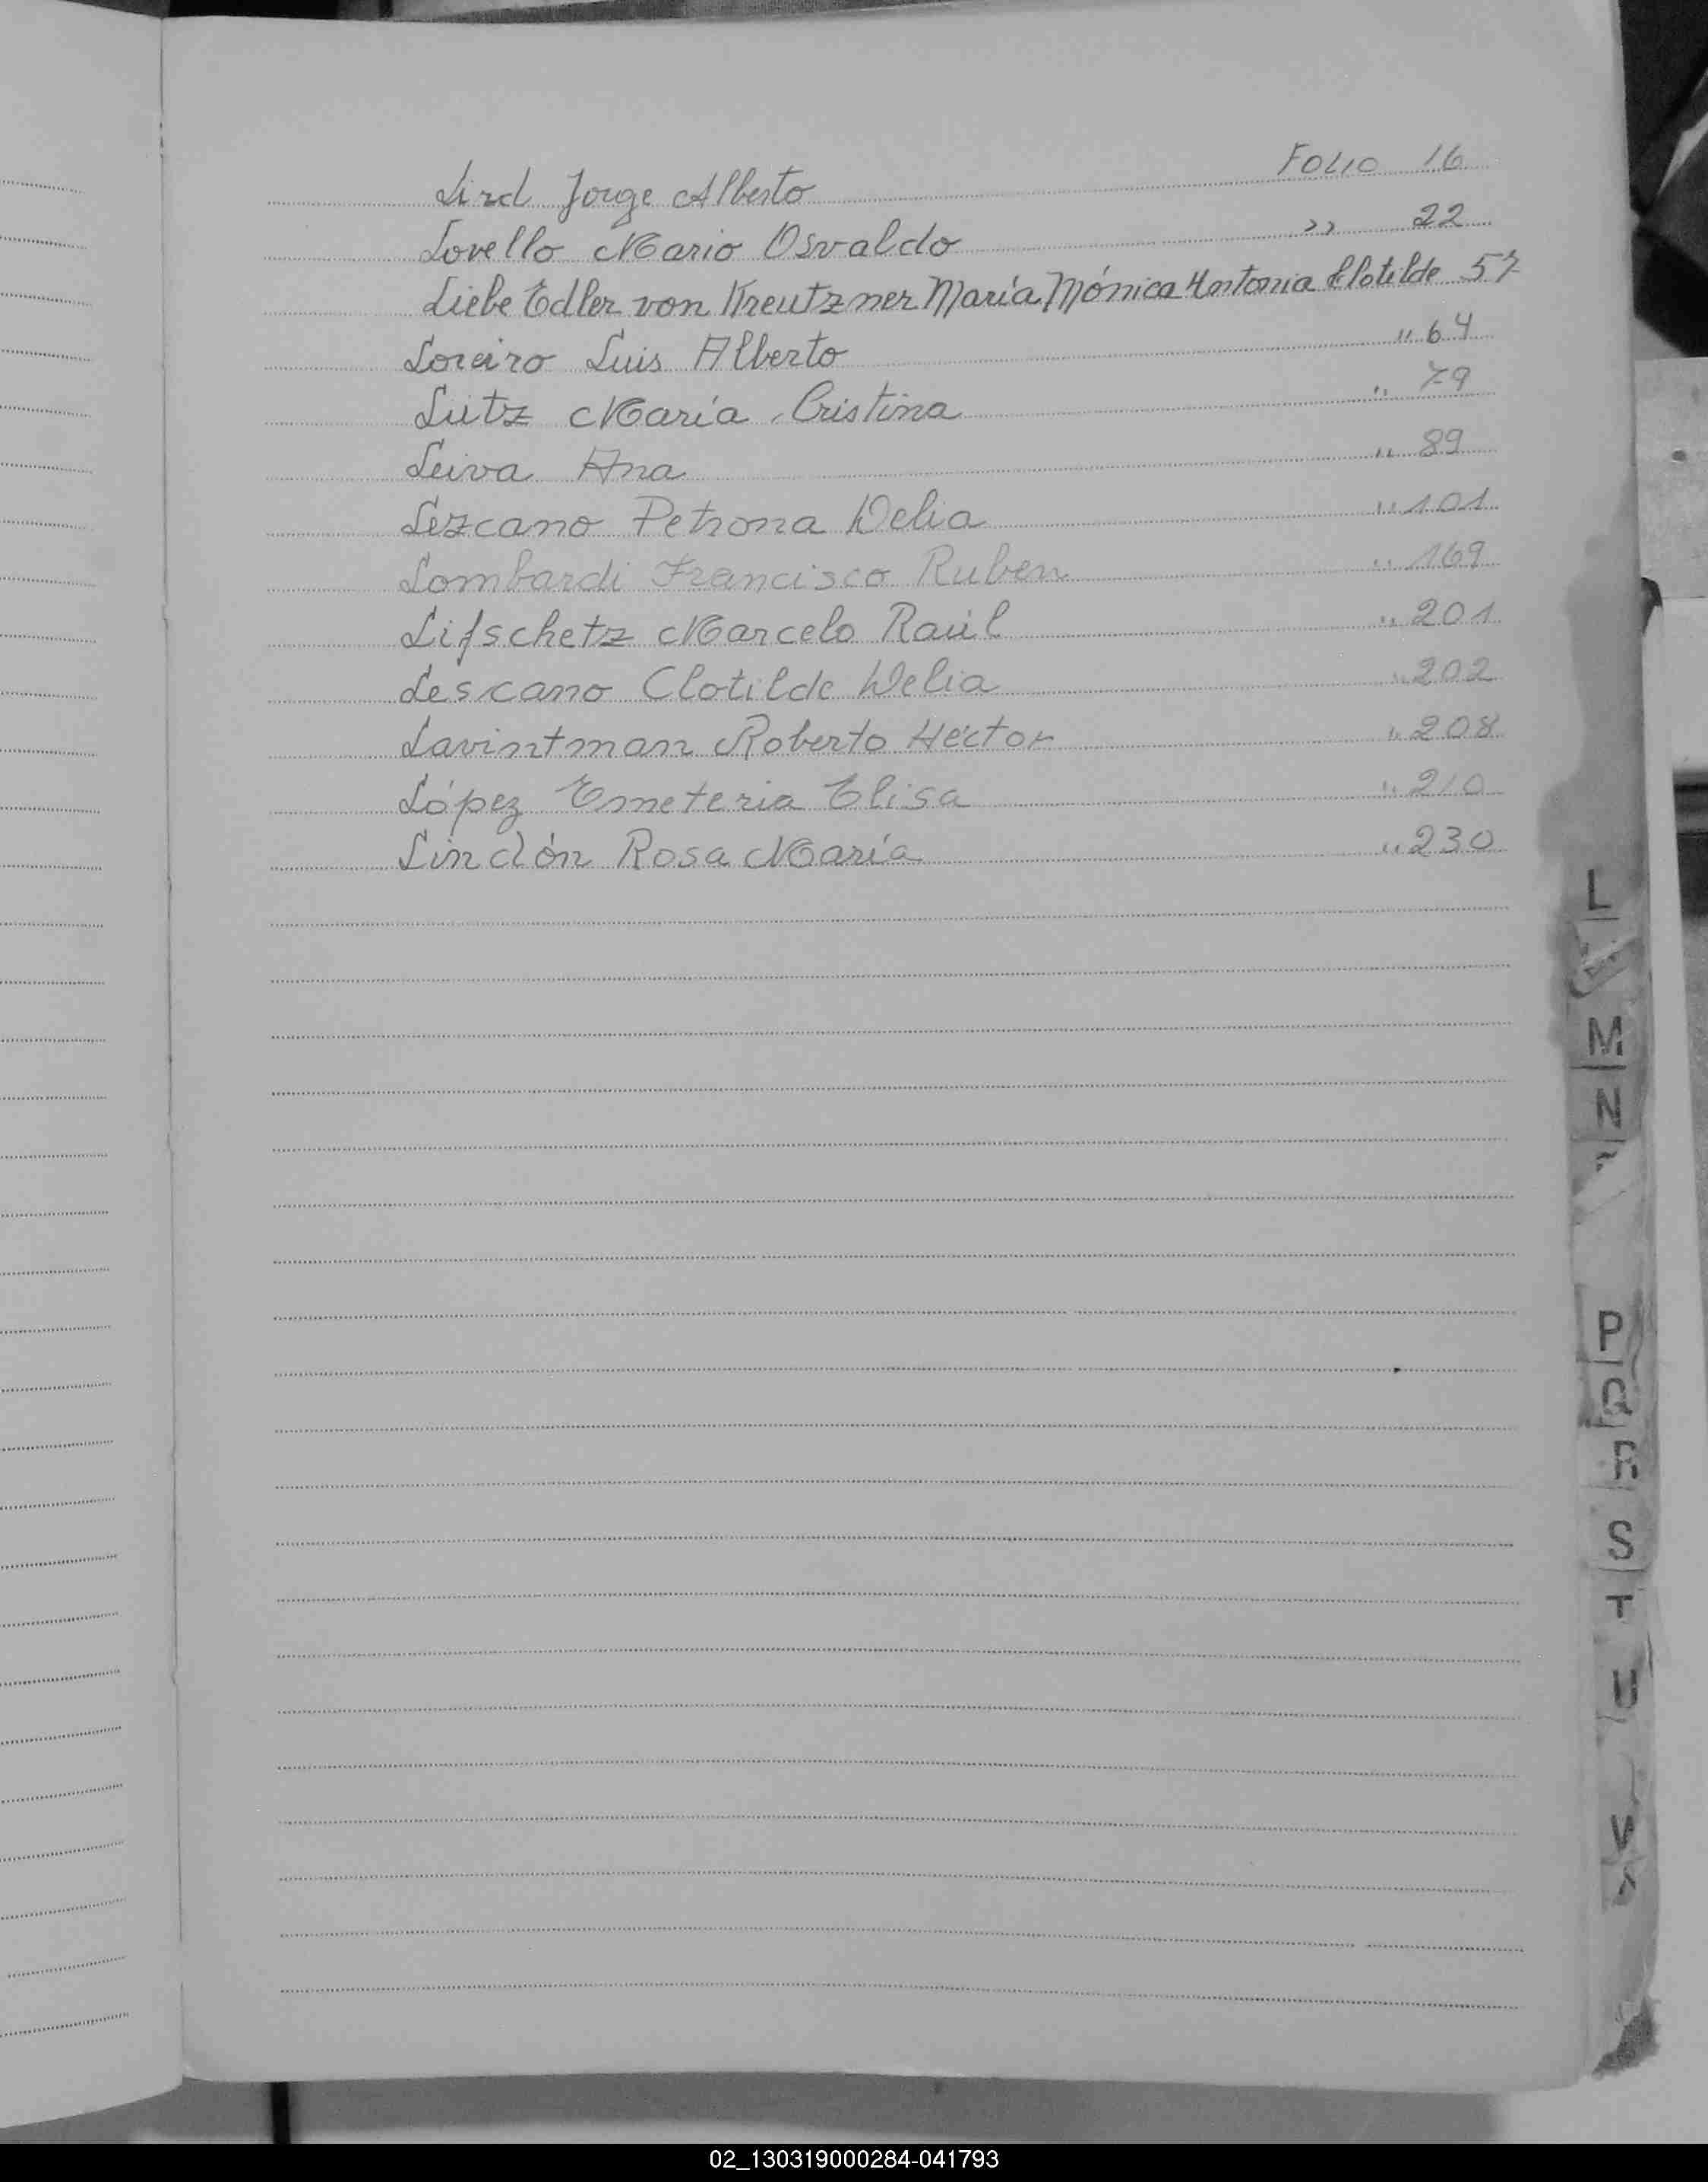 Lird Jorge Alberto FOLIO 16
Lovello Mario Osvaldo " 22
Liebe Edler von Kreutzner María Mónica Antonia Clotilde 57
Loreiro Luis Alberto " 64
Lutz María Cristina " 79
Leiva Ana " 89
Lezcano Petrona Delia " 101
Lombardi Francisco Ruben " 169
Lifschetz Marcelo Raúl " 201
Lescano Clotilde Delia " 202
Lavintman Roberto Héctor " 208
López Emeteria Elisa " 210
Lindón Rosa María " 230
L
M
N
P
Q
R
S
T
U
V
02_130319000284-041793